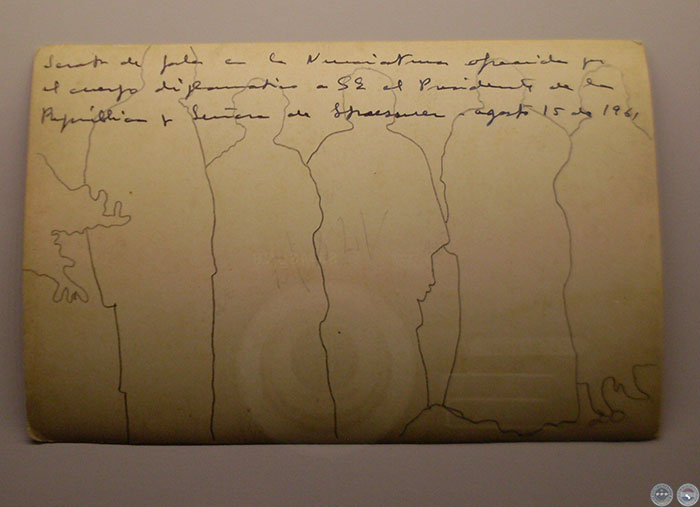 Serata de gala en la Nunciatura ofrecida por
el cuerpo diplomatico a SE el Presidente de la
República y Señora de Stroessner agosto 15 de 1961